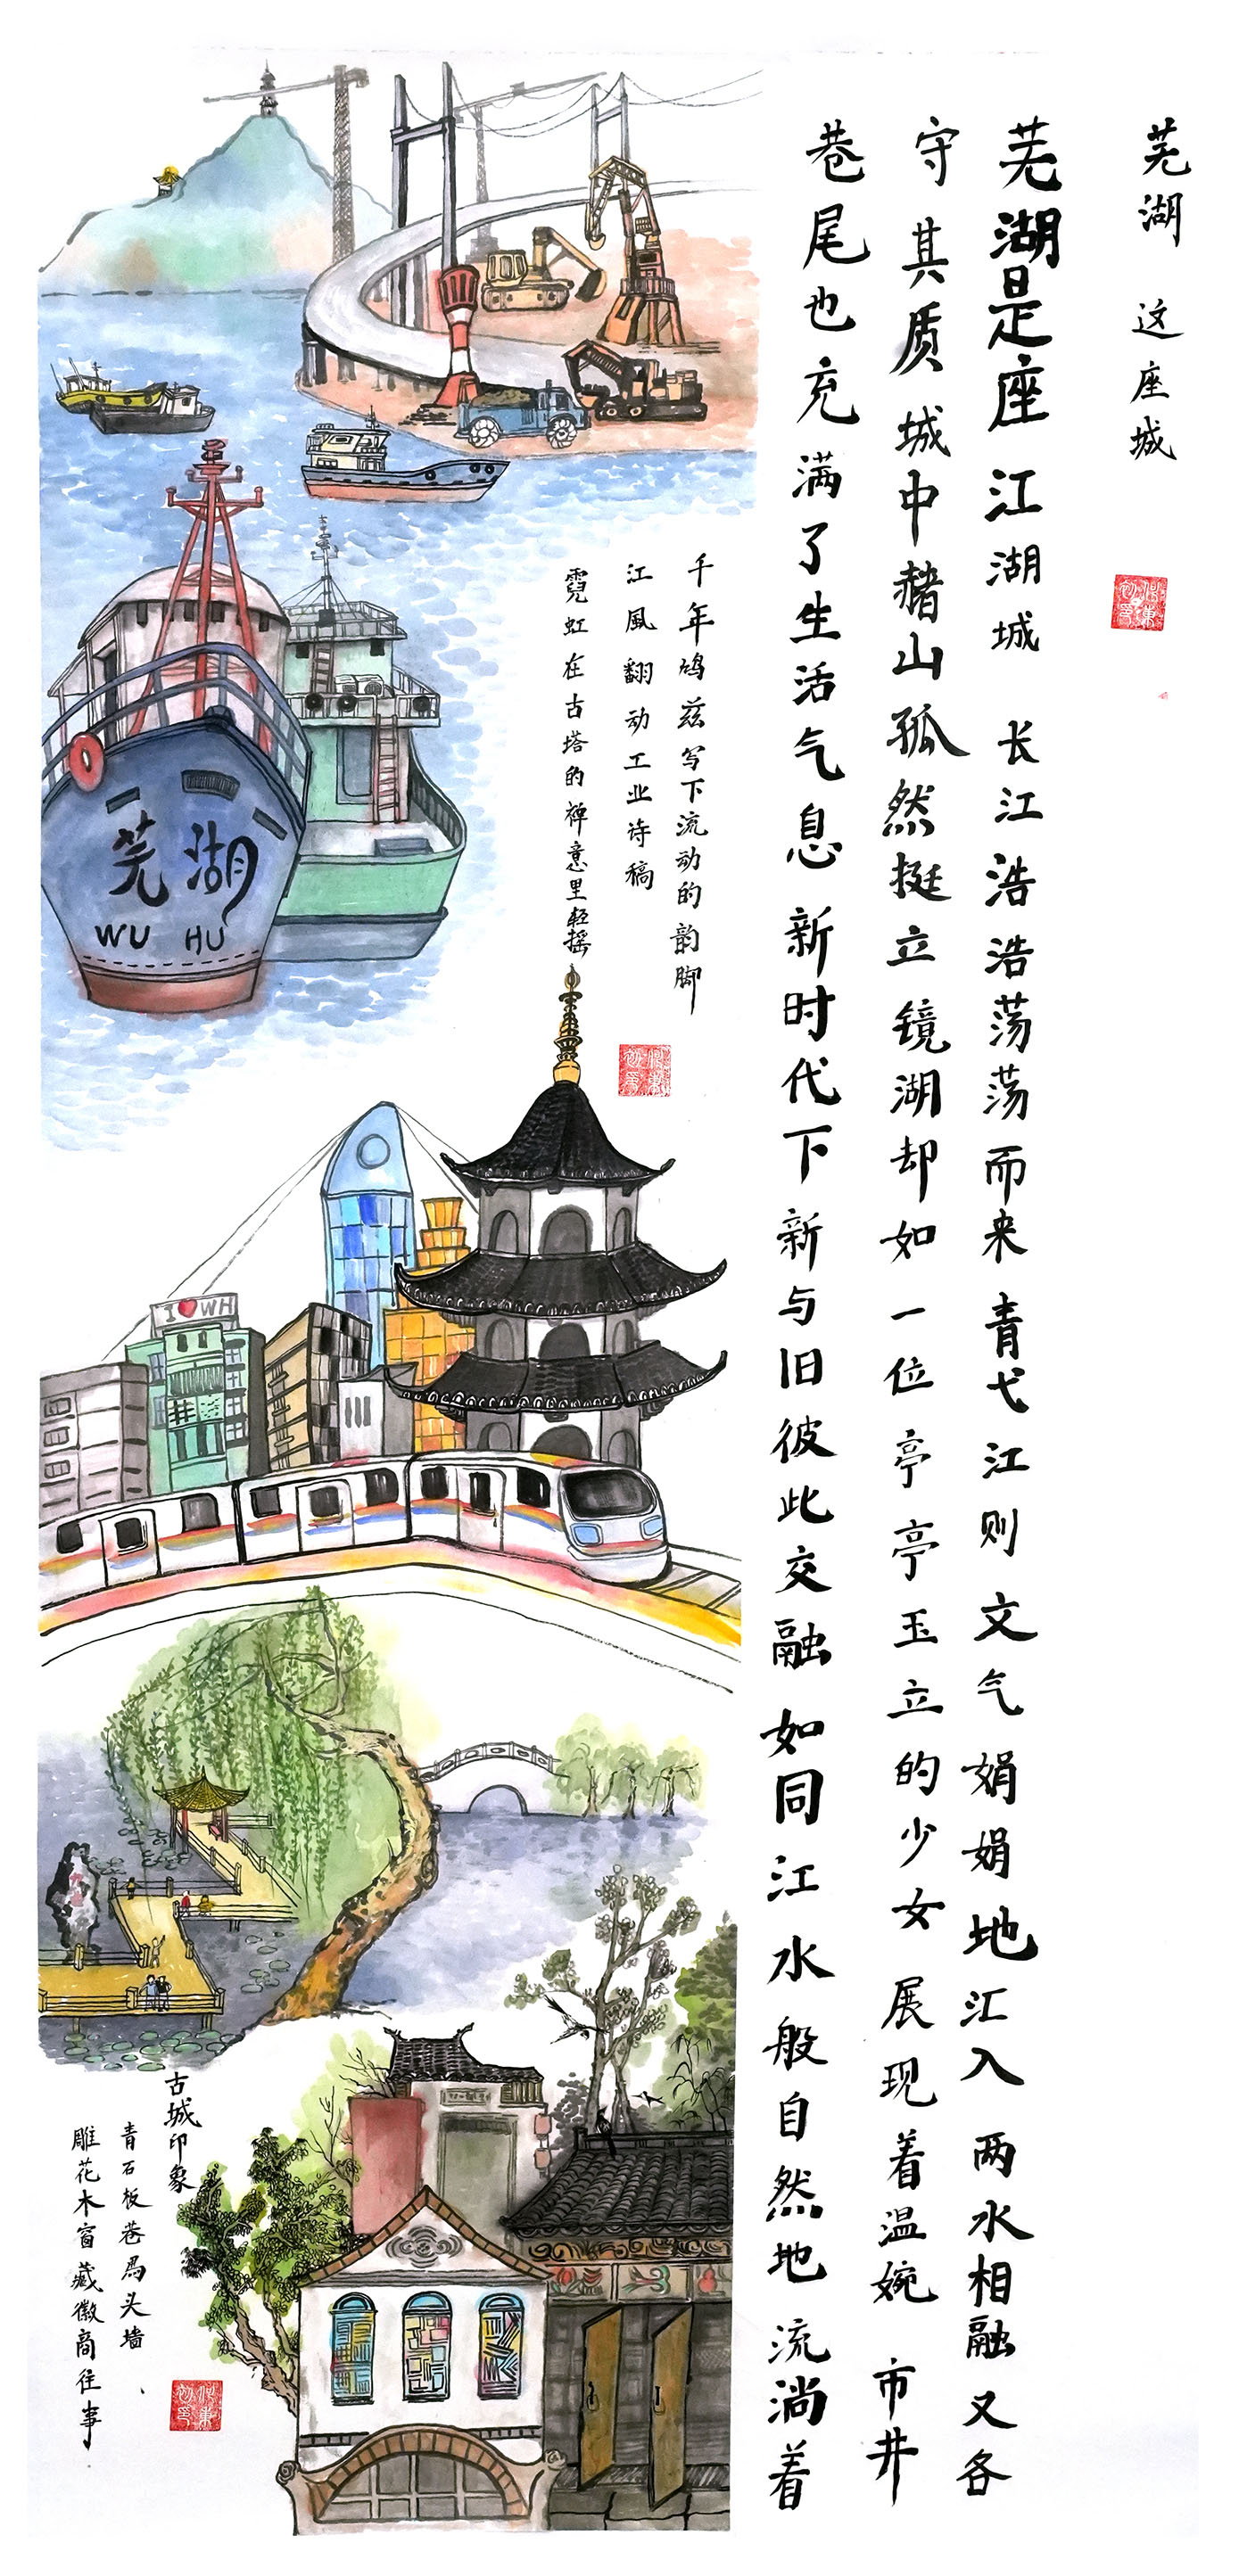 芜湖 这座城
芜湖是座 江湖城 长江浩浩荡荡而来 青弋江则文气娟娟地汇入 两水相融又各
守其质 城中赭山孤然挺立 镜湖却如一位亭亭玉立的少女 展现着温婉 市井
巷尾也充满了生活气息 新时代下 新与旧彼此交融 如同江水般自然地流淌着
千年鸠兹写下流动的韵脚
江風翻动工业诗稿
霓虹在古塔的禅意里轻摇
芜湖
WU HU
I ❤ WH
古城印象
青石板巷马头墙
雕花木窗藏徽商往事